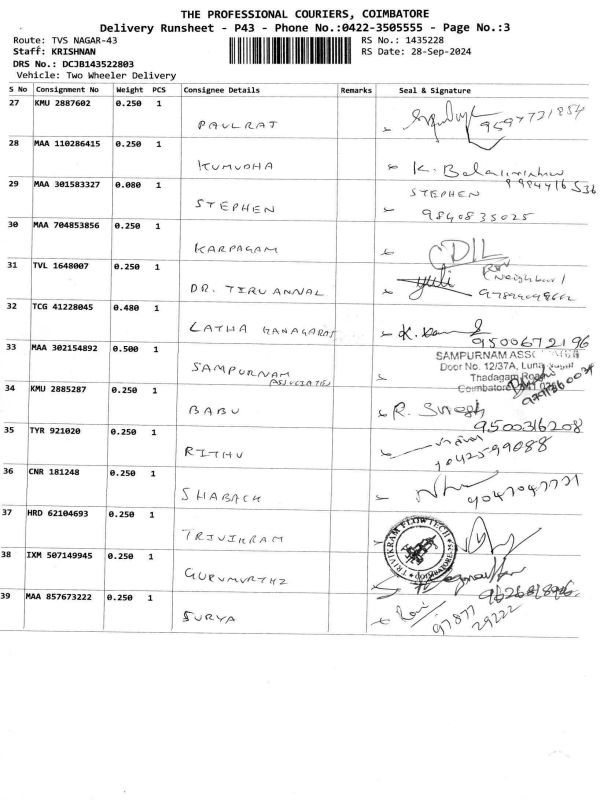 THE PROFESSIONAL COURIERS, COIMBATORE
Delivery Runsheet - P43 - Phone No.:0422-3505555 - Page No.:3
Route: TVS NAGAR-43 RS No.: 1435228
Staff: KRISHNAN RS Date: 28-Sep-2024
DRS No.: DCJB143522803
Vehicle: Two Wheeler Delivery
S No Consignment No Weight PCS Consignee Details Remarks Seal & Signature
27 KMU 2887602 0.250 1
PAULRAJ
28 MAA 110286415 0.250 1
KUMUDHA K.
29 MAA 301583327 0.080 1 STEPHEN
STEPHEN 9840835025
30 MAA 704853856 0.250 1
KARPAGAM CDIL
31 TVL 1648007 0.250 1
DR. TIRU ANNAL
32 TCG 41228045 0.480 1
LATHA KANAGARAJ 9500672196
33 MAA 302154892 0.500 1 SAMPURNAM
Door No. 12/37A, Luna
SAMPURNAM Thadagam Road
ASSOCIATES Coimbatore
34 KMU 2885287 0.250 1
BABU R.
9500316208
35 TYR 921020 0.250 1
RITHU
36 CNR 181248 0.250 1
SHABACK
37 HRD 62104693 0.250 1
TRIVIKRAM TRIVIKRAM FLOWTECH
38 IXM 507149945 0.250 1
GURUMURTHI
39 MAA 857673222 0.250 1
SURYA Ravi
97877
29222